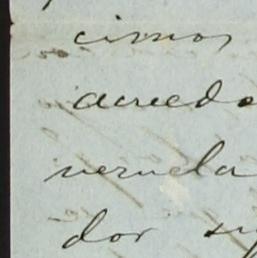 cimos
acreedo
veruela
dor